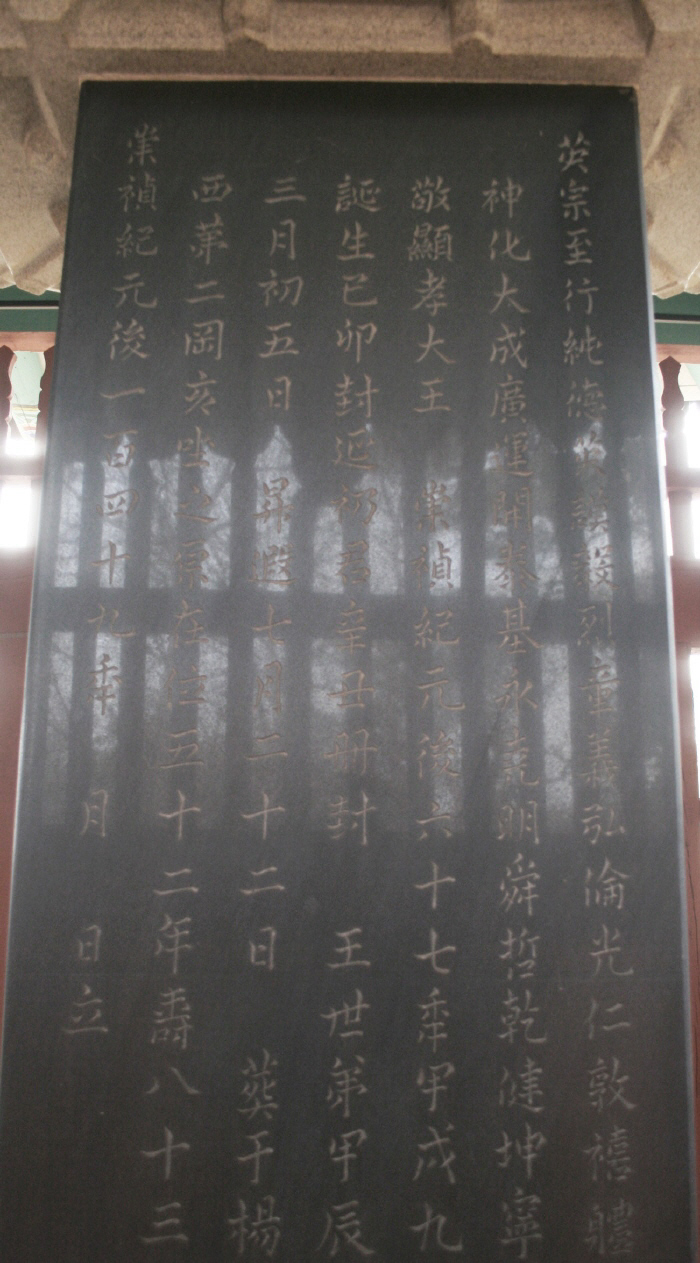 英宗至行純德英謨毅烈章義弘倫光仁敦禧軆
神化大成廣運開泰基永堯明舜哲乾健坤寧
敬顯孝大王 崇禎紀元後六十七秊甲戌九
誕生己卯封延礽君辛丑冊封 王世弟甲辰
三月初五日 昇遐七月二十二日 葬于楊
西第二岡亥坐之原在位五十二年壽八十三
崇禎紀元後一百四十九秊 月 日立